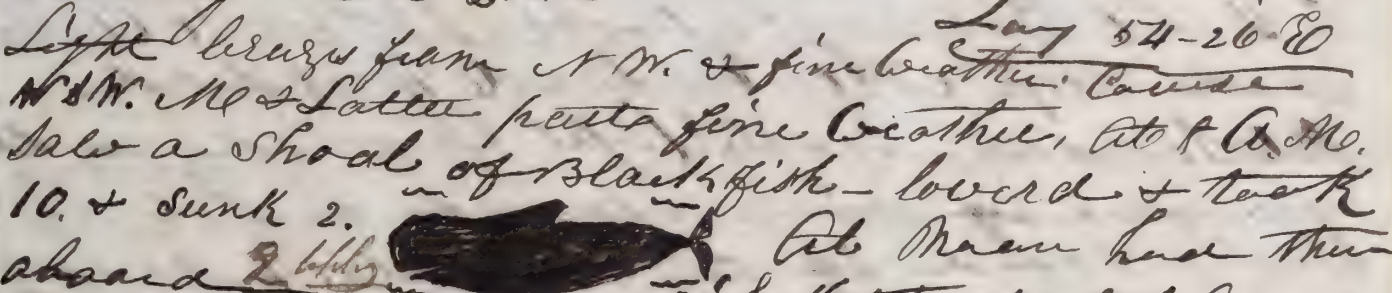 Long 54-26 E
Light breezes from N W. & fine weather. Course
W. M & Latter parts fine weather, At 8 A. M.
Saw a Shoal of Blackfish - lowerd & took
10. & Sunk 2. At Noon had them
aboard 2 bbls